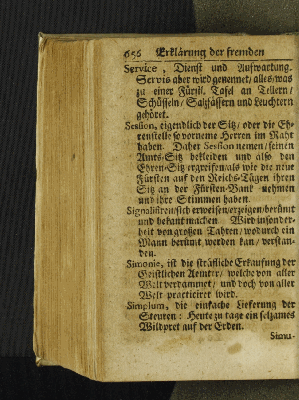 656 Erklärung der fremden
Service, Dienst und Aufwartung.
Servis aber wird genennet / alles / was
zu einer Fürstl. Tafel an Tellern /
Schüsseln / Saltzfässern und Leuchtern
gehöret.
Session, eigendlich der Sitz / oder die Eh-
renstelle so vorneme Herren im Raht
haben. Daher Session nemen / seinen
Amts-Sitz bekleiden und also den
Ehren-Sitz ergreifen als wie die neue
Fürsten auf den Reichs-Tägen ihren
Sitz an der Fürsten-Bank nehmen
und ihre Stimmen haben.
Signalisiren / sich erweisen / erzeigen / berümt
und bekant machen. Wird insonder-
heit von großen Tahten / wodurch ein
Mann berümt werden kan / verstan-
den.
Simonie, ist die sträfliche Erkaufung der
Geistlichen Aemter / welche von aller
Welt verdammet / und doch von aller
Welt practiciret wird.
Simplum, die einfache Lieferung der
Steuren: Heute zu tage ein seltzames
Wildpret auf der Erden.
Simu-